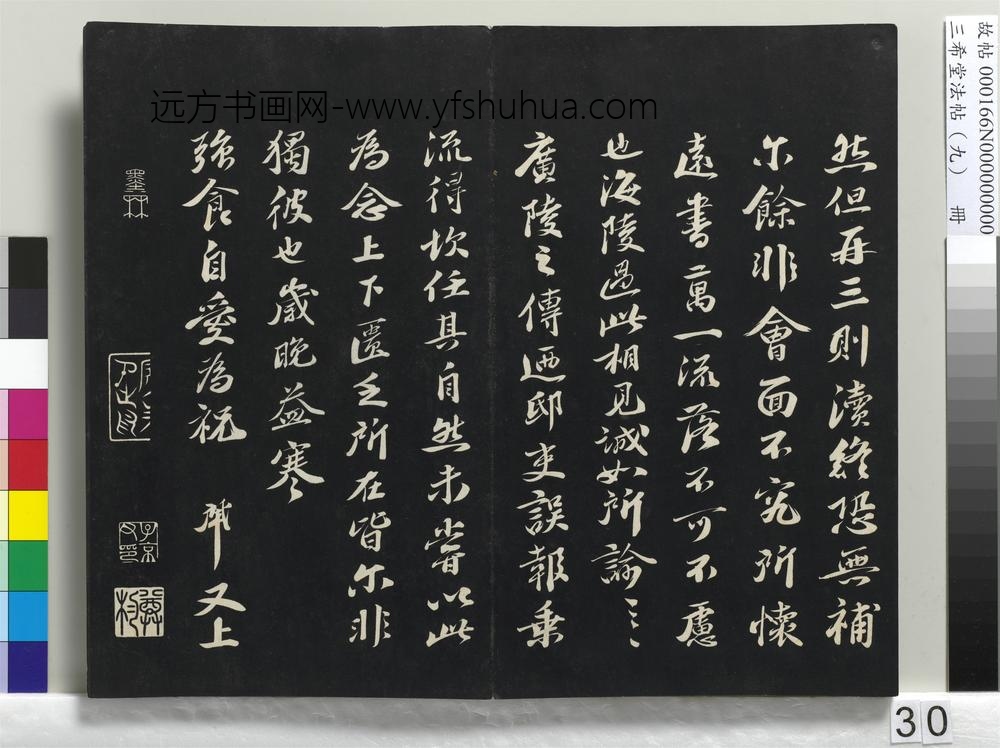 远方书画网-www.yfshuhua.com
然但再三則瀆終恐無補
尓餘非會面不究所懷
遠書萬一流落不可不慮
也海陵過此相見誠如所諭〻〻
廣陵之傳迺邸吏誤報乗
流得坎任其自然未嘗以此
為念上下匱乏所在皆尓非
獨彼也歲晚益寒
強食自愛為祝 軾又上
墨林
子京
故帖 000166N000000000
三希堂法帖（九） 冊
30